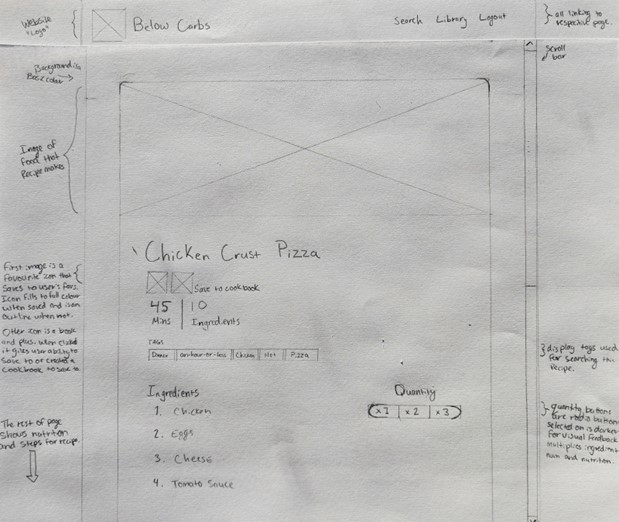 Website
"Logo"
Below Carbs
Search Library Logout
all linking to
respective page.
Scroll
bar
Background is
Image of
Food that
Recipe makes
Chicken Crust Pizza
Save to cookbook
45 | 10
Mins | Ingredients
TAGS
Dinner | on-hour-or-less | Chicken | Hot | Pizza
First image is a
favourite icon that
Saves to user's favs
Icon fills to full colour
when saved and is an
outline when not.
Other icon is a book
and plus. when clicked
it gives user ability to
save to or create a
cookbook to save to
display tags used
for searching this
recipe.
Ingredients
1. Chicken
2. Eggs
3. Cheese
4. Tomato Sauce
Quantity
x1 | x2 | x3
quantity buttons
are radio buttons
selected on is darker
for visual feedback
Multiplies ingredient
num and nutrition.
The rest of page
shows nutrition
and steps for recipe.